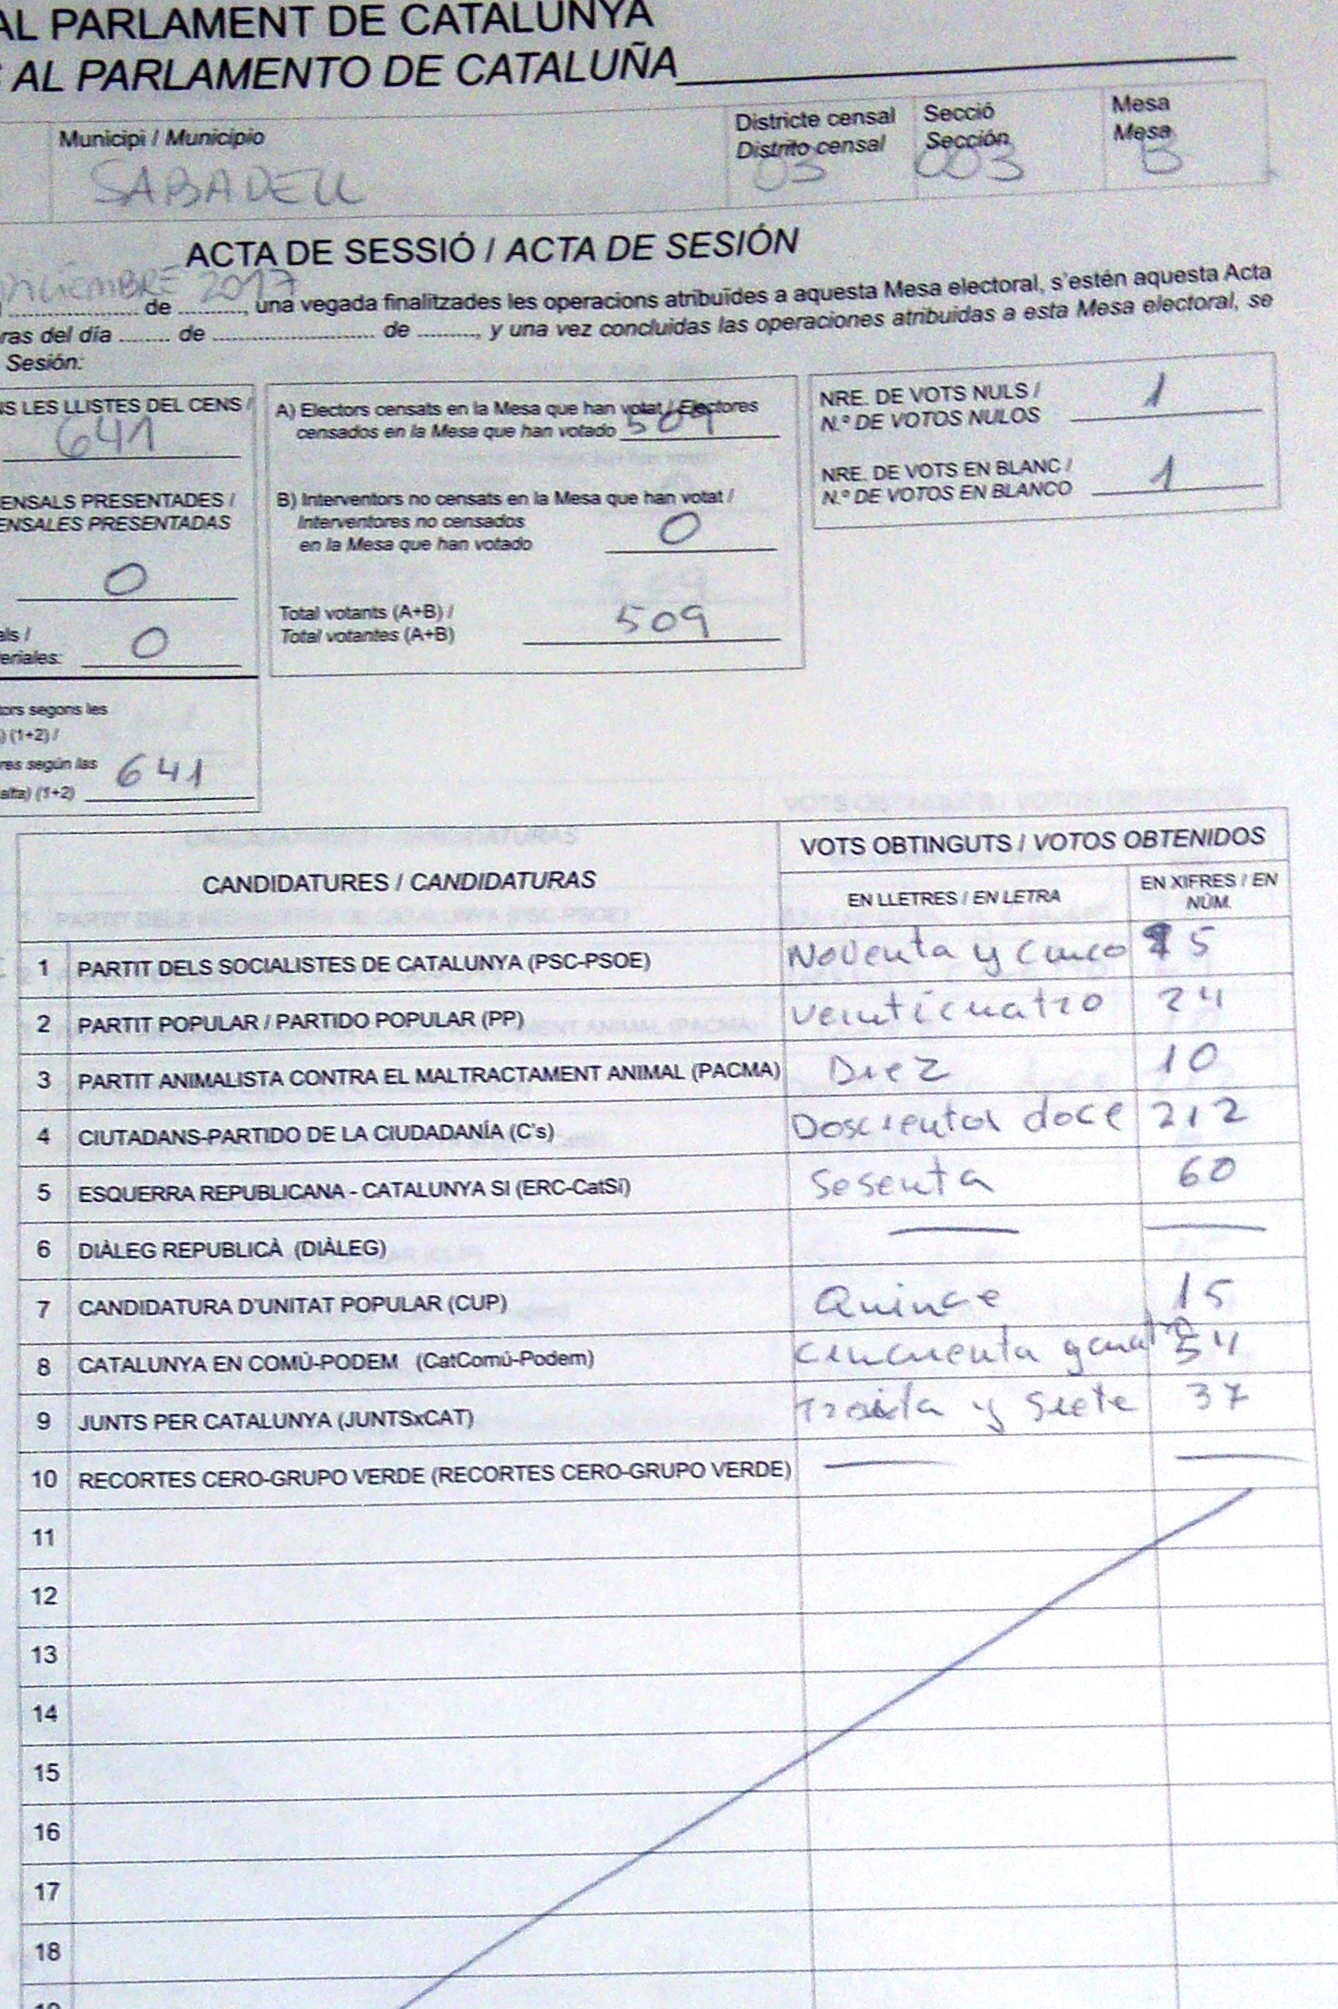 AL PARLAMENT DE CATALUNYA
AL PARLAMENTO DE CATALUÑA
Municipi / Municipio
SABADELL
Districte censal
Distrito censal
03
Secció
Sección
003
Mesa
Mesa
B
ACTA DE SESSIÓ / ACTA DE SESIÓN
DICIEMBRE 2017
de ........., una vegada finalitzades les operacions atribuïdes a aquesta Mesa electoral, s'estén aquesta Acta
ras del día ........ de .......................... de ........., y una vez concluidas las operaciones atribuidas a esta Mesa electoral, se
Sesión:
LES LLISTES DEL CENS /
641
ENSALS PRESENTADES /
ENSALES PRESENTADAS
0
als /
eriales:
0
ors segons les
(1+2) /
res según las
alta) (1+2)
641
A) Electors censats en la Mesa que han votat / Electores
censados en la Mesa que han votado 509
B) Interventors no censats en la Mesa que han votat /
Interventores no censados
en la Mesa que han votado
0
Total votants (A+B) /
Total votantes (A+B)
509
NRE. DE VOTS NULS /
N.º DE VOTOS NULOS
1
NRE. DE VOTS EN BLANC /
N.º DE VOTOS EN BLANCO
1
CANDIDATURES / CANDIDATURAS
VOTS OBTINGUTS / VOTOS OBTENIDOS
EN LLETRES / EN LETRA
EN XIFRES / EN
NÚM.
1 PARTIT DELS SOCIALISTES DE CATALUNYA (PSC-PSOE) Noventa y cinco 95
2 PARTIT POPULAR / PARTIDO POPULAR (PP) Veinticuatro 24
3 PARTIT ANIMALISTA CONTRA EL MALTRACTAMENT ANIMAL (PACMA) Diez 10
4 CIUTADANS-PARTIDO DE LA CIUDADANÍA (C's) Doscientos doce 212
5 ESQUERRA REPUBLICANA - CATALUNYA SI (ERC-CatSí) Sesenta 60
6 DIÀLEG REPUBLICÀ (DIÀLEG)
7 CANDIDATURA D'UNITAT POPULAR (CUP) Quince 15
8 CATALUNYA EN COMÚ-PODEM (CatComú-Podem) cincuenta y cuatro 54
9 JUNTS PER CATALUNYA (JUNTSxCAT) Treinta y siete 37
10 RECORTES CERO-GRUPO VERDE (RECORTES CERO-GRUPO VERDE)
11
12
13
14
15
16
17
18
19